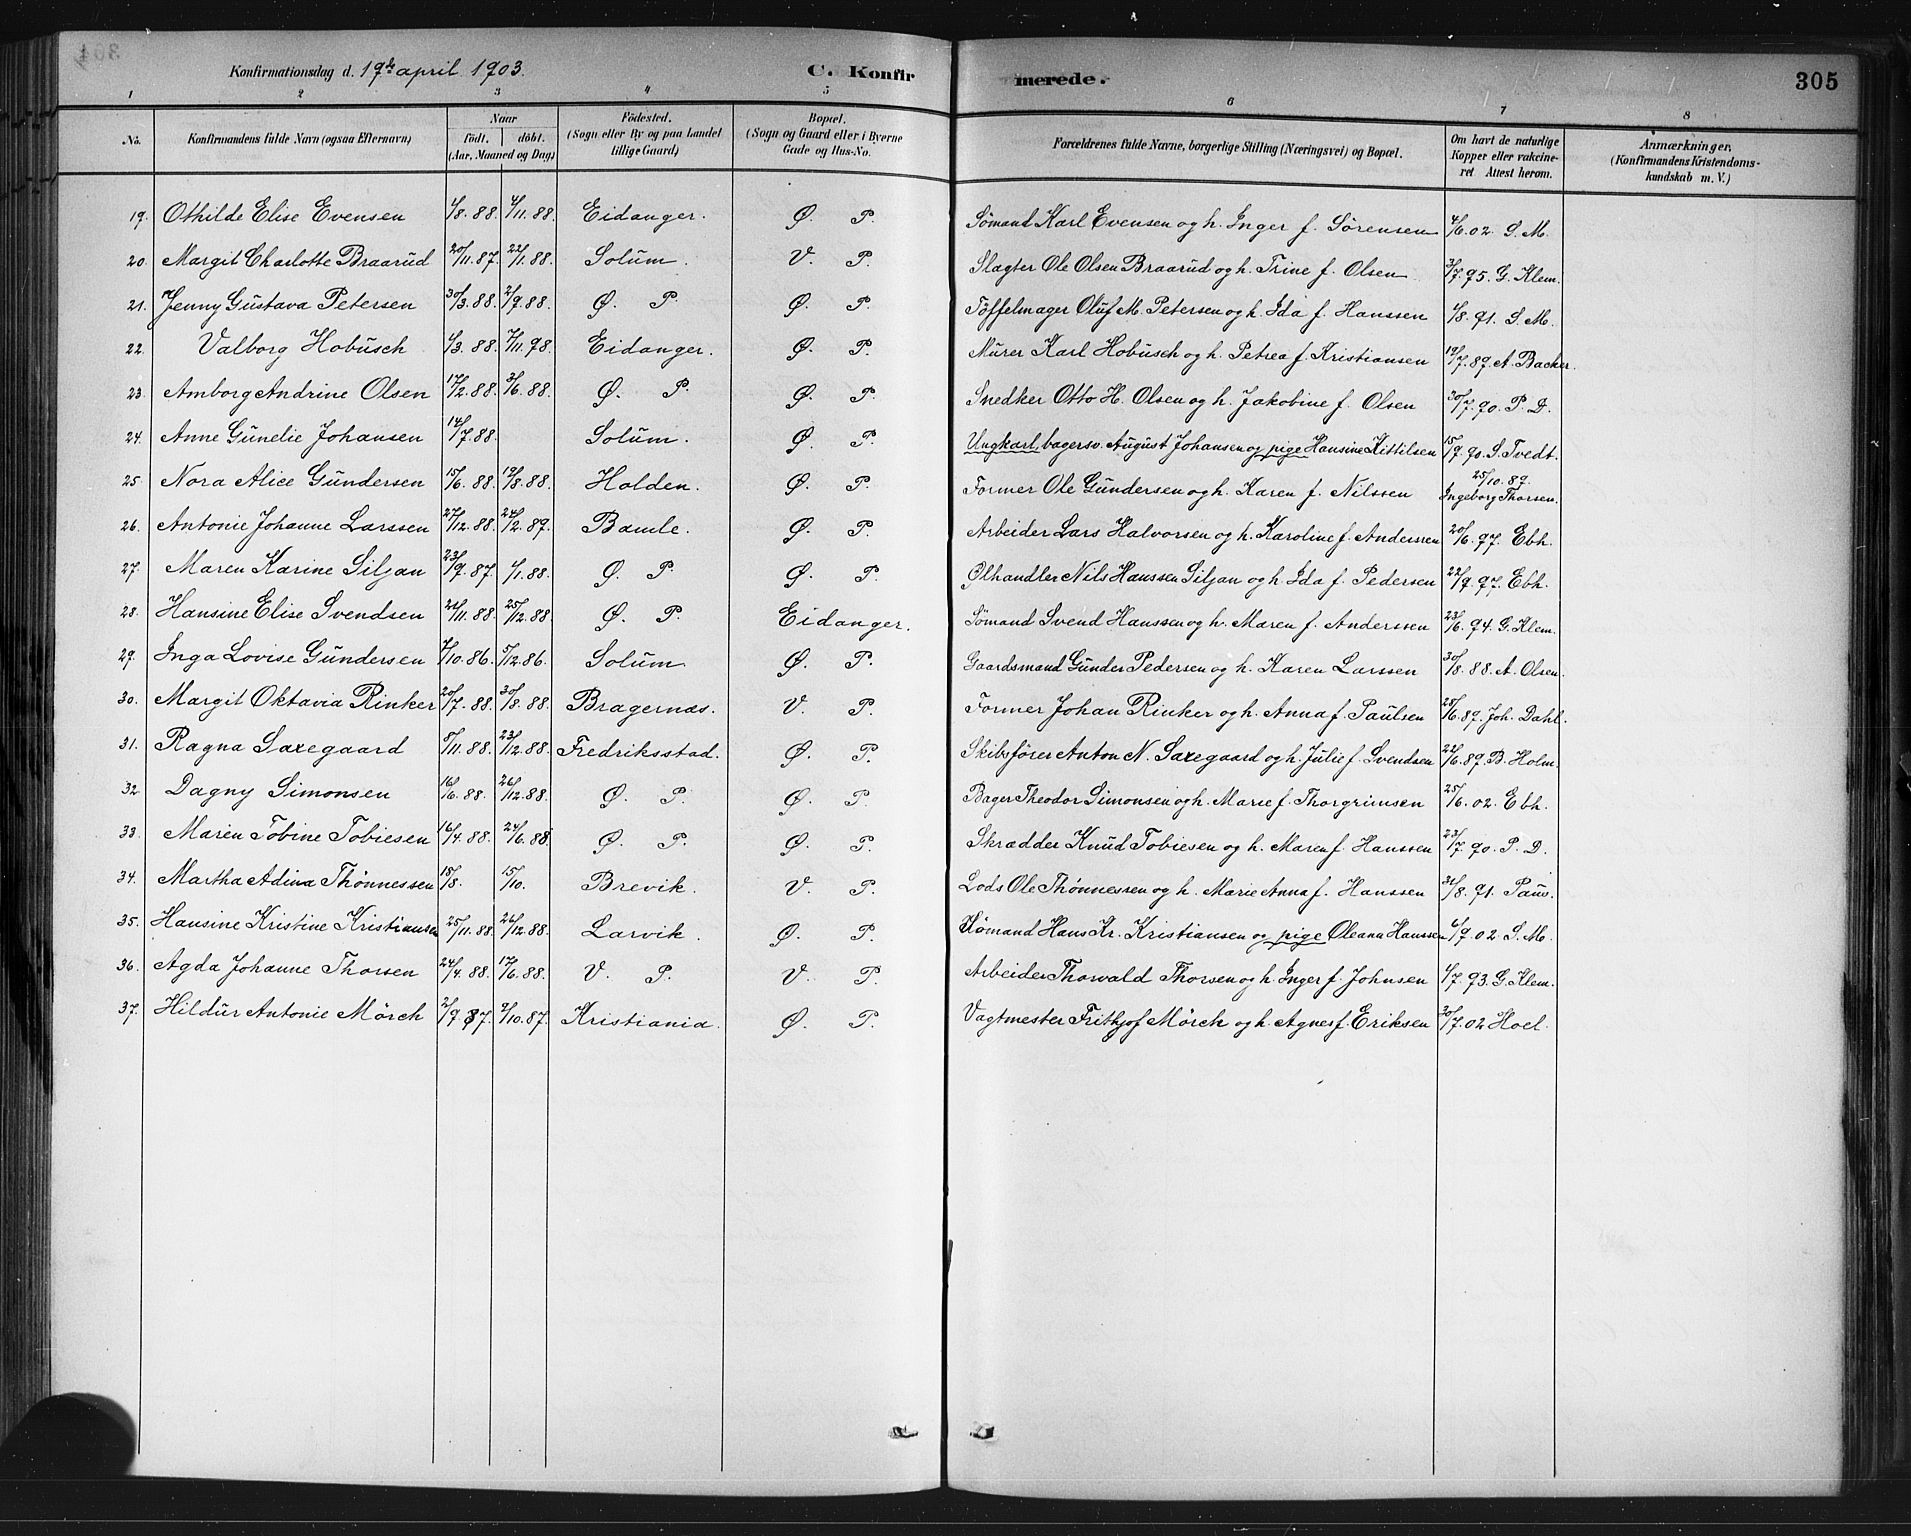 Konfirmationsdag d. 19de april 1903. C. Konfir merede. 305
1 2 3 4 5 6 7 8
No. Konfirmandens fulde Navn (ogsaa Efternavn) Naar födt. döbt. (Aar, Maaned og Dag) Födested. (Sogn eller By og paa Landet tillige Gaard) Bopæl. (Sogn og Gaard eller i Byerne Gade og Hus-No. Forældrenes fulde Navne, borgerlige Stilling (Næringsvei) og Bopæl. Om havt de naturlige Kopper eller vakcineret Attest herom. Anmærkninger, (Konfirmandens Kristendomskundskab m. V.)
19. Othilde Elise Evensen 4/8. 88. 4/11. 88. Eidanger. Ø. P. Sømand Karl Evensen og h. Inger f. Sørensen 4/6. 02. S. M.
20. Margit Charlotte Braarud 20/11. 87. 22/1. 88. Solum. V. P. Slagter Ole Olsen Braarud og h. Trine f. Olsen 3/7. 95. G. Klem.
21. Jenny Gustava Petersen 30/3. 88. 2/9. 88. Ø. P. Ø. P. Töffelmager Oluf M. Petersen og h. Ida f. Hanssen 4/8. 91. S. M.
22. Valborg Hobusch 4/3. 88. 7/11. 98. Eidanger. Ø. P. Murer Karl Hobusch og h. Petrea f. Kristiansen 19/7. 89. A. Backer.
23. Amborg Andrine Olsen 17/2. 88. 3/6. 88. Ø. P. Ø. P. Snedker Otto H. Olsen og h. Jakobine f. Olsen 30/7. 90. P. D.
24. Anne Gunelie Johansen 14/7. 88. Solum. Ø. P. Ungkarl, bagersv. August Johansen og pige Hansine Kittilsen 15/9. 90. S. Tvedt.
25. Nora Alice Gundersen 15/6. 88. 19/8. 88. Holden. Ø. P. Former Ole Gundersen og h. Karen f. Nilssen 25/10. 89. Ingeborg Thorsen.
26. Antonie Johanne Larssen 27/12. 88. 24/2. 89. Bamle. Ø. P. Arbeider Lars Halvorsen og h. Karoline f. Anderssen 20/6. 97. Ebh.
27. Maren Karine Siljan 23/9. 87. 4/1. 88. Ø. P. Ø. P. Ølhandler Nils Hanssen Siljan og h. Ida f. Pedersen 22/9. 97. Ebh.
28. Hansine Elise Svendsen 24/11. 88. 25/12. 88. Ø. P. Eidanger. Sømand Svend Hanssen og h. Maren f. Anderssen 23/6. 94. G. Klem.
29. Inga Lovise Gundersen 7/10. 86. 5/12. 86. Solum. Ø. P. Gaardsmand Gunder Pedersen og h. Karen Larssen 30/8. 88. A. Olsen.
30. Margit Oktavia Rinker 20/7. 88. 30/8. 88. Bragernæs. V. P. Former Johan Rinker og h. Anna f. Paulsen 28/6. 89. Joh. Dahl.
31. Ragna Saxegaard 5/11. 88. 23/12. 88. Fredriksstad. Ø. P. Skibsfører Anton N. Saxegaard og h. Julie f. Svendsen 22/6. 89. B. Holm.
32. Dagny Simonsen 16/6. 88. 26/12. 88. Ø. P. Ø. P. Bager Theodor Simonsen og h. Marie f. Thorgrimsen 25/6. 02. Ebh.
33. Maren Tobine Tobiesen 16/4. 88. 24/6. 88. Ø. P. Ø. P. Skrædder Knud Tobiesen og h. Maren f. Hanssen 23/7. 90. P. D.
34. Martha Adina Thönnessen 18/8. 15/10. Brevik. V. P. Lods Ole Thønnessen og h. Marie Anna f. Hanssen 31/8. 91. Paus.
35. Hansine Kristine Kristiansen 25/11. 88. 26/12. 88. Larvik. Ø. P. Sømand Hans Kr. Kristiansen og pige Oleana Hanssen 6/9. 02. S. M.
36. Agda Johanne Thorsen 24/4. 88. 17/6. 88. V. P. V. P. Arbeider Thorvald Thorsen og h. Inger f. Johnsen 4/7. 93. G. Klem.
37. Hildur Antonie Mörch 2/9. 87. 9/10. 87. Kristiania. Ø. P. Vagtmester Frithjof Mörch og h. Agnes f. Eriksen 30/7. 02 Hoel.